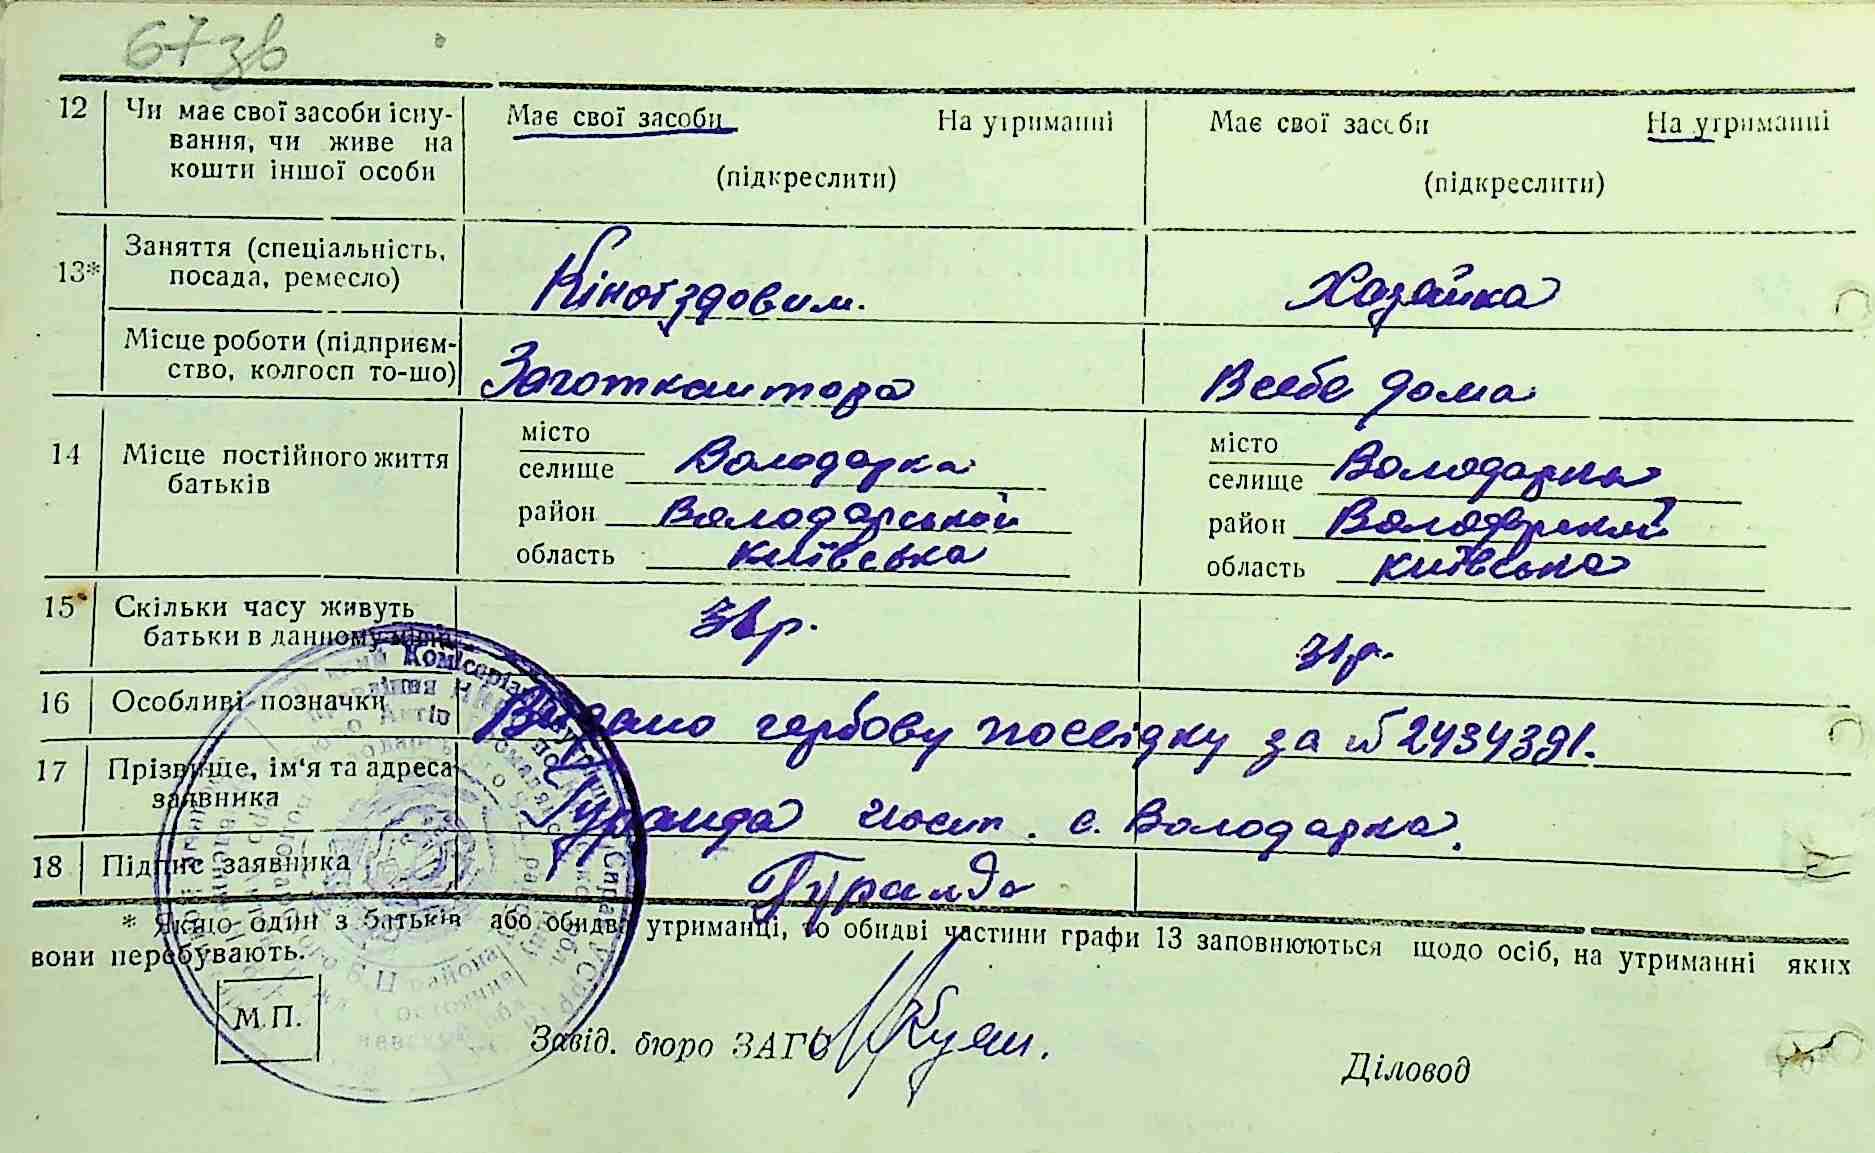 67 зв
12 Чи має свої засоби існу- Має свої засоби На утриманні Має свої засоби На утриманні
вання, чи живе на
кошти іншої особи (підкреслити) (підкреслити)
Заняття (спеціальність,
13* посада, ремесло) Кіноїздовим. Хазяйка
Місце роботи (підприєм-
ство, колгосп то-що) Заготконтора В себе дома
місто місто
14 Місце постійного життя селище Володарка селище Володарка
батьків район Володарській район Володарскій
область Київська область Київська
15 Скільки часу живуть 31 р. 31 р.
батьки в данному місці
16 Особливі позначки Видано гербову посвідку за № 2434391.
17 Прізвище, ім'я та адреса
заявника Гуранда Йосип. с. Володарка.
18 Підпис заявника Гуранда
* Якщо один з батьків або обидві утриманці, то обидві частини графи 13 заповнюються щодо осіб, на утриманні яких
вони перебувають.
М.П.
Завід. бюро ЗАГС Діловод